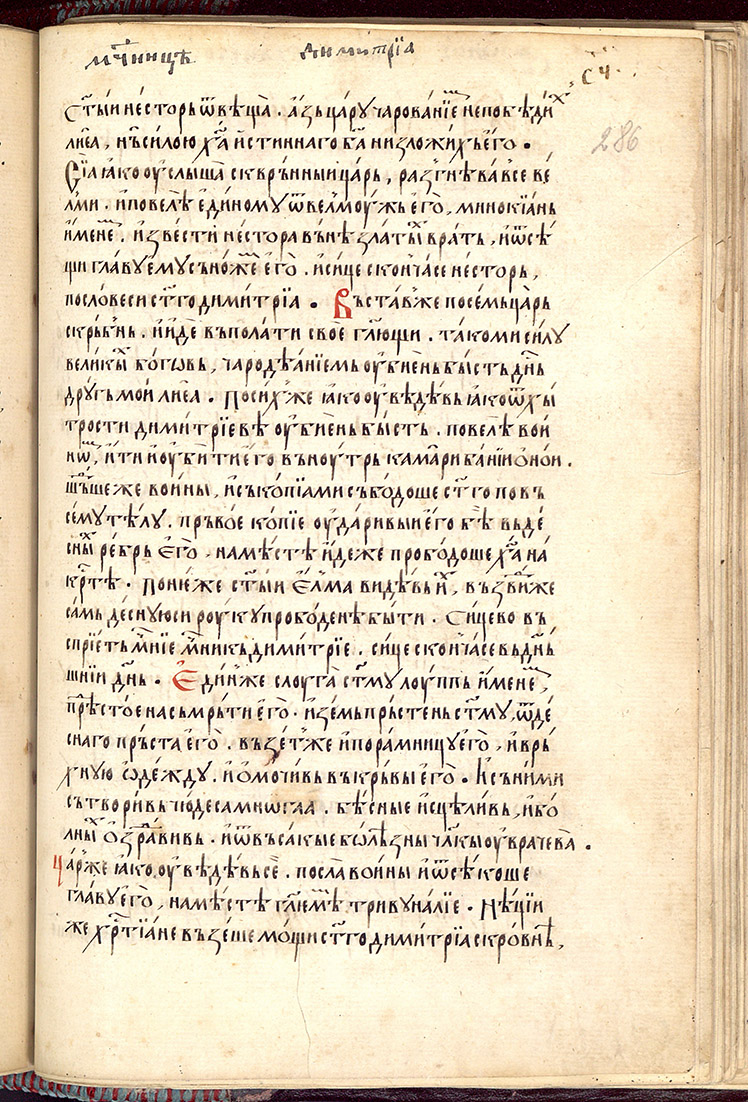 мⷭ҇ца ди́митрїа
с҃ч.
286
Ст҃ыи не́сторь ѿвѣща̀ . а́зь ца́ру чарова́нїемⷨ непобѣди́хⷯ
лиеа , нъ си́лою хⷭ҇а и́стиннаго ба҃ низложи́хь е́го •
Сїа ꙗ́ко оу҆слы́ша скврь́нныи ца́рь , разгнѣ́ва все ве́
лми . и҆повелѣ̀ е҆ди́ному ѿ велмоу́жь е҆го̀ , минокїа́нь
и҆менемⷨ . и҆звестѝ не́стора вънѣ̀ златы́хⷯ вра́ть , и҆ѿсѣ́
щи главу̀ е҆му съ но́жемⷨ е҆го̀ . и҆си́це сконча́се не́сторь ,
по словесѝ ст҃го дими́трїа • Въста́вже посе́мь ца́рь
скрь́бнь . и҆и́де въ пола́ти своѐ гл҃ющи . та́ко ми си́лу
вели́кыхⷯ бо́говь , чародѣа́нїемь оу҆бїе́нь бы́сть дн҃ь
дру́гь мо́и лие́а . По си́хⷤже ꙗ́ко оу҆вѣ́дѣвь ꙗ́ко ѿ хы́
трости дими́трїеве оу҆бїе́нь бы́сть . повелѣ̀ во́и
нѡмⷨ , и҆тѝ и҆оу҆би́ти е҆го̀ въноу́трь кама́ри ба́нїи о҆нои .
шь́дⷣше же во́ины , и҆съ ко́пїами събо́доше ст҃го по въ
се́му тѣ́лу . прь́вое ко́пїе оу҆да́ривыи е҆го̀ бѣ̀ вь де́
сны́хⷯ ре́брь е҆го̀ , на мѣ́стѣ и҆де́же пробо́доше хⷭ҇а на
крⷭ҇тѣ̀ . Понѥ́же ст҃ыи е҆гⷣа видѣ́вь и́хⷯ , въздви́же
са́мь десну́ю си роу́ку прободенѣ̀ бы́ти . Си́цево въ
спрїе́ть мⷱ҇нїе мⷱ҇никь дими́трїе . си́це сконча́се вь дн҃ь
шнїи дн҃ь • Е҆ди́нже слоуга̀ ст҃му лоу́ппь и҆менемⷨ ,
прѣстоѐ на съмрь́ти е҆го̀ . и҆зе́мь прь́стень ст҃му , ѿ де́
снаго прь́ста е҆го̀ . възе́тже и҆ пора́мницу е҆го̀ , и҆врь́
хную ѡ҆де́жду . и҆ о҆мочи́вь въ крь́вы е҆го̀ • И҆ съ ни́ми
сътво́ривь чюдеса̀ мнѡ́гаа . бѣ́сные и҆сцѣли́вь , и҆бо́
лны́хⷯ о҆здра́вивь . и҆ѿ въса́кые болѣ́зны чл҃кы оу҆врачева̀ .
Ца́рже ꙗ́ко оу҆вѣ́дѣвь сѐ . посла̀ во́ины и҆ѿсѣ́коше
главу̀ е҆го̀ , на мѣ́стѣ гл҃емѣмⷨ тривуна́лїе . Нѣ́цїи
же хрⷭ҇тїа́не възе́ше мо́щи ст҃го дими́трїа скро́внѣ ,